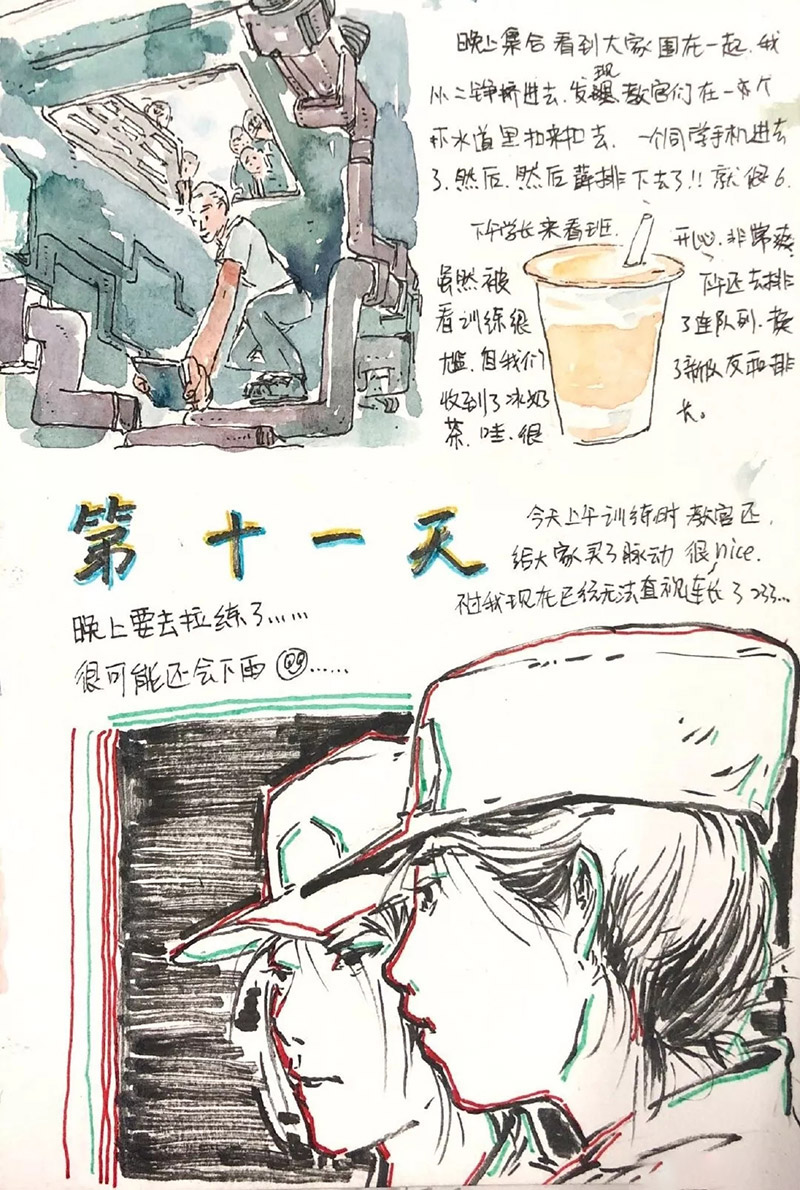 晚上集合看到大家围在一起.我
从二锦挤进去.发现教官们在一个
下水道里扣来扣去.一个同学手机进去
了.然后.然后薛排下去了!!就很6.
下午学长来看班.
虽然被
看训练很
尬.但我们
收到了冰奶
茶.哇.很
开心.非常爽
下午还去排
了连队列.卖
了新队友和排
长。
第十一天
今天上午训练时教官还.
给大家买了脉动 很nice.
不过我现在已经无法直视连长了233...
晚上要去拉练了……
很可能还会下雨……